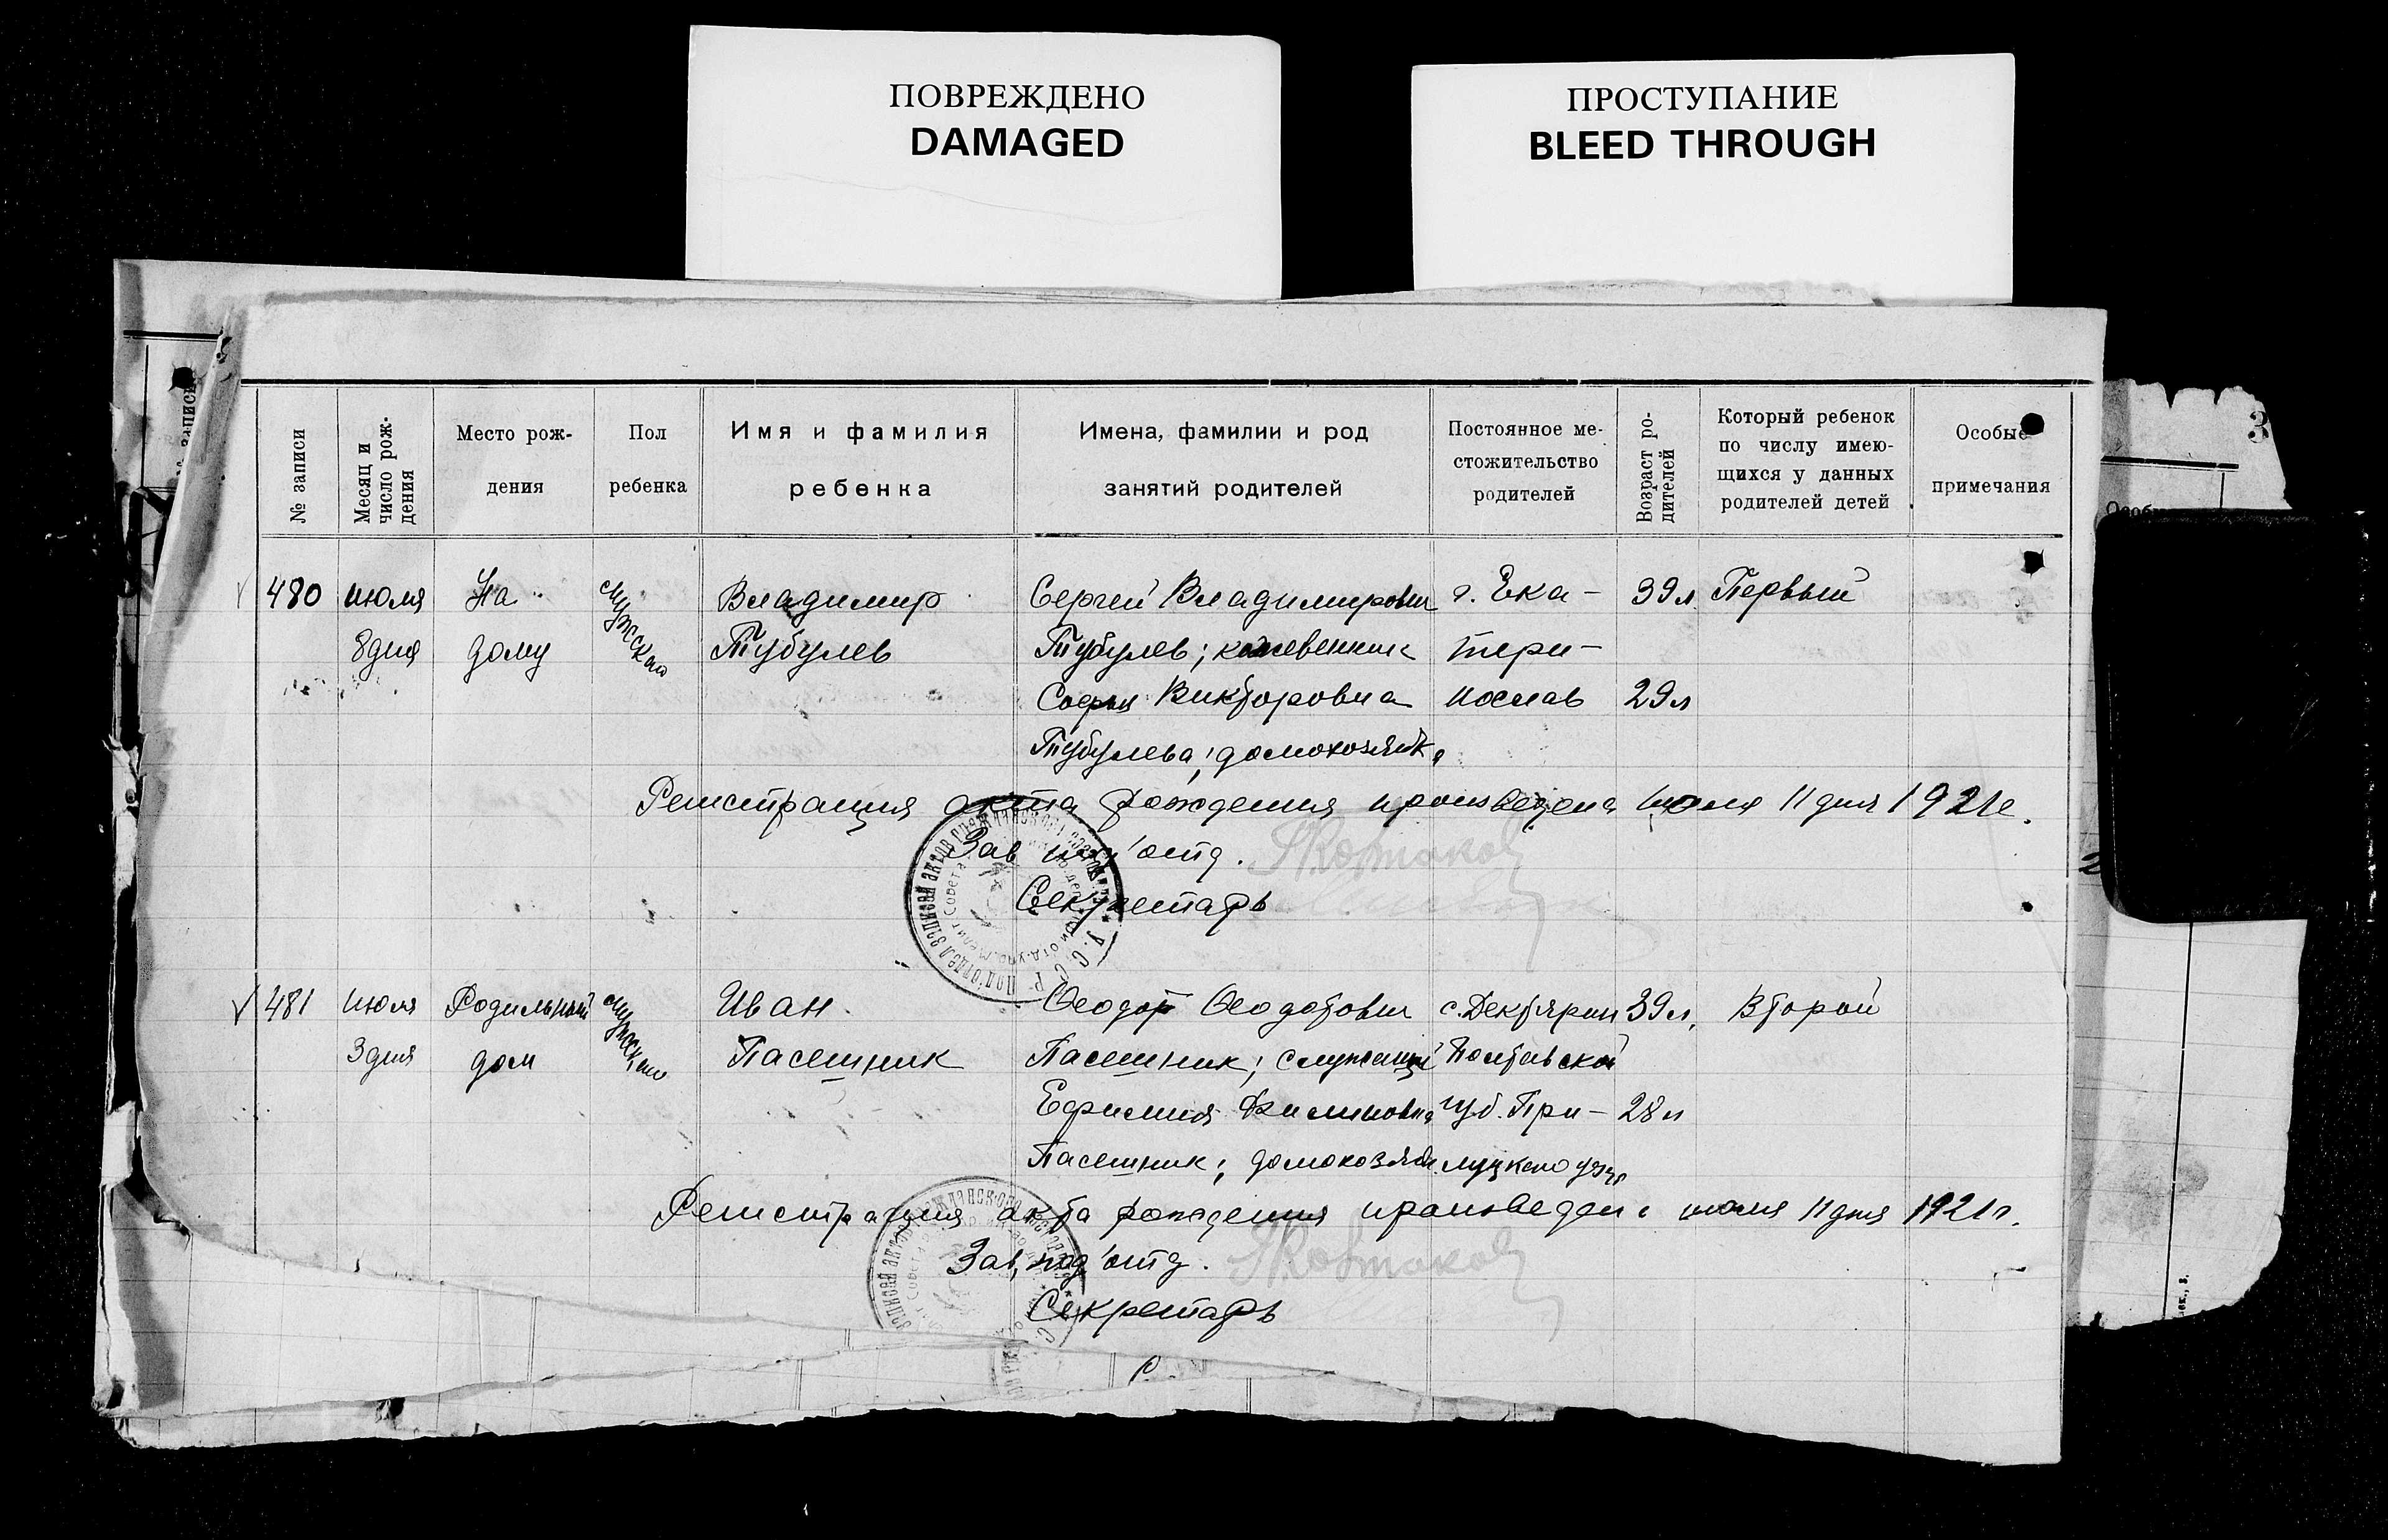 ПОВРЕЖДЕНО
DAMAGED
ПРОСТУПАНИЕ
BLEED THROUGH
№ записи
Месяц и
число рож-
дения
Место рож-
дения
Пол
ребенка
Имя и фамилия
ребенка
Имена, фамилии и род
занятий родителей
Постоянное ме-
стожительство
родителей
Возраст ро-
дителей
Который ребенок
по числу имею-
щихся у данных
родителей детей
Особые
примечания
3
480 июля На мужской Владимир Сергей Владимирович г. Ека- 39 л. Первый
8 дня дому Тубулев Тубулев; кожевенник тери-
София Викторовна нослав 29 л
Тубулева; домохозяйка
Регистрация акта рождения произведена июля 11 дня 1921 г.
Зав. под'отд.
Секретарь
481 июля Родильный мужской Иван Феодот Феодотович с. Дехтярки 39 л. Второй
3 дня дом Пасешник Пасешник; служащий Полтавской
Ефимия губ. При- 28 л
Пасешник; домохозяй. луцкого уезд
Регистрация акта рождения произведена июля 11 дня 1921 г.
Зав. под'отд.
Секретарь